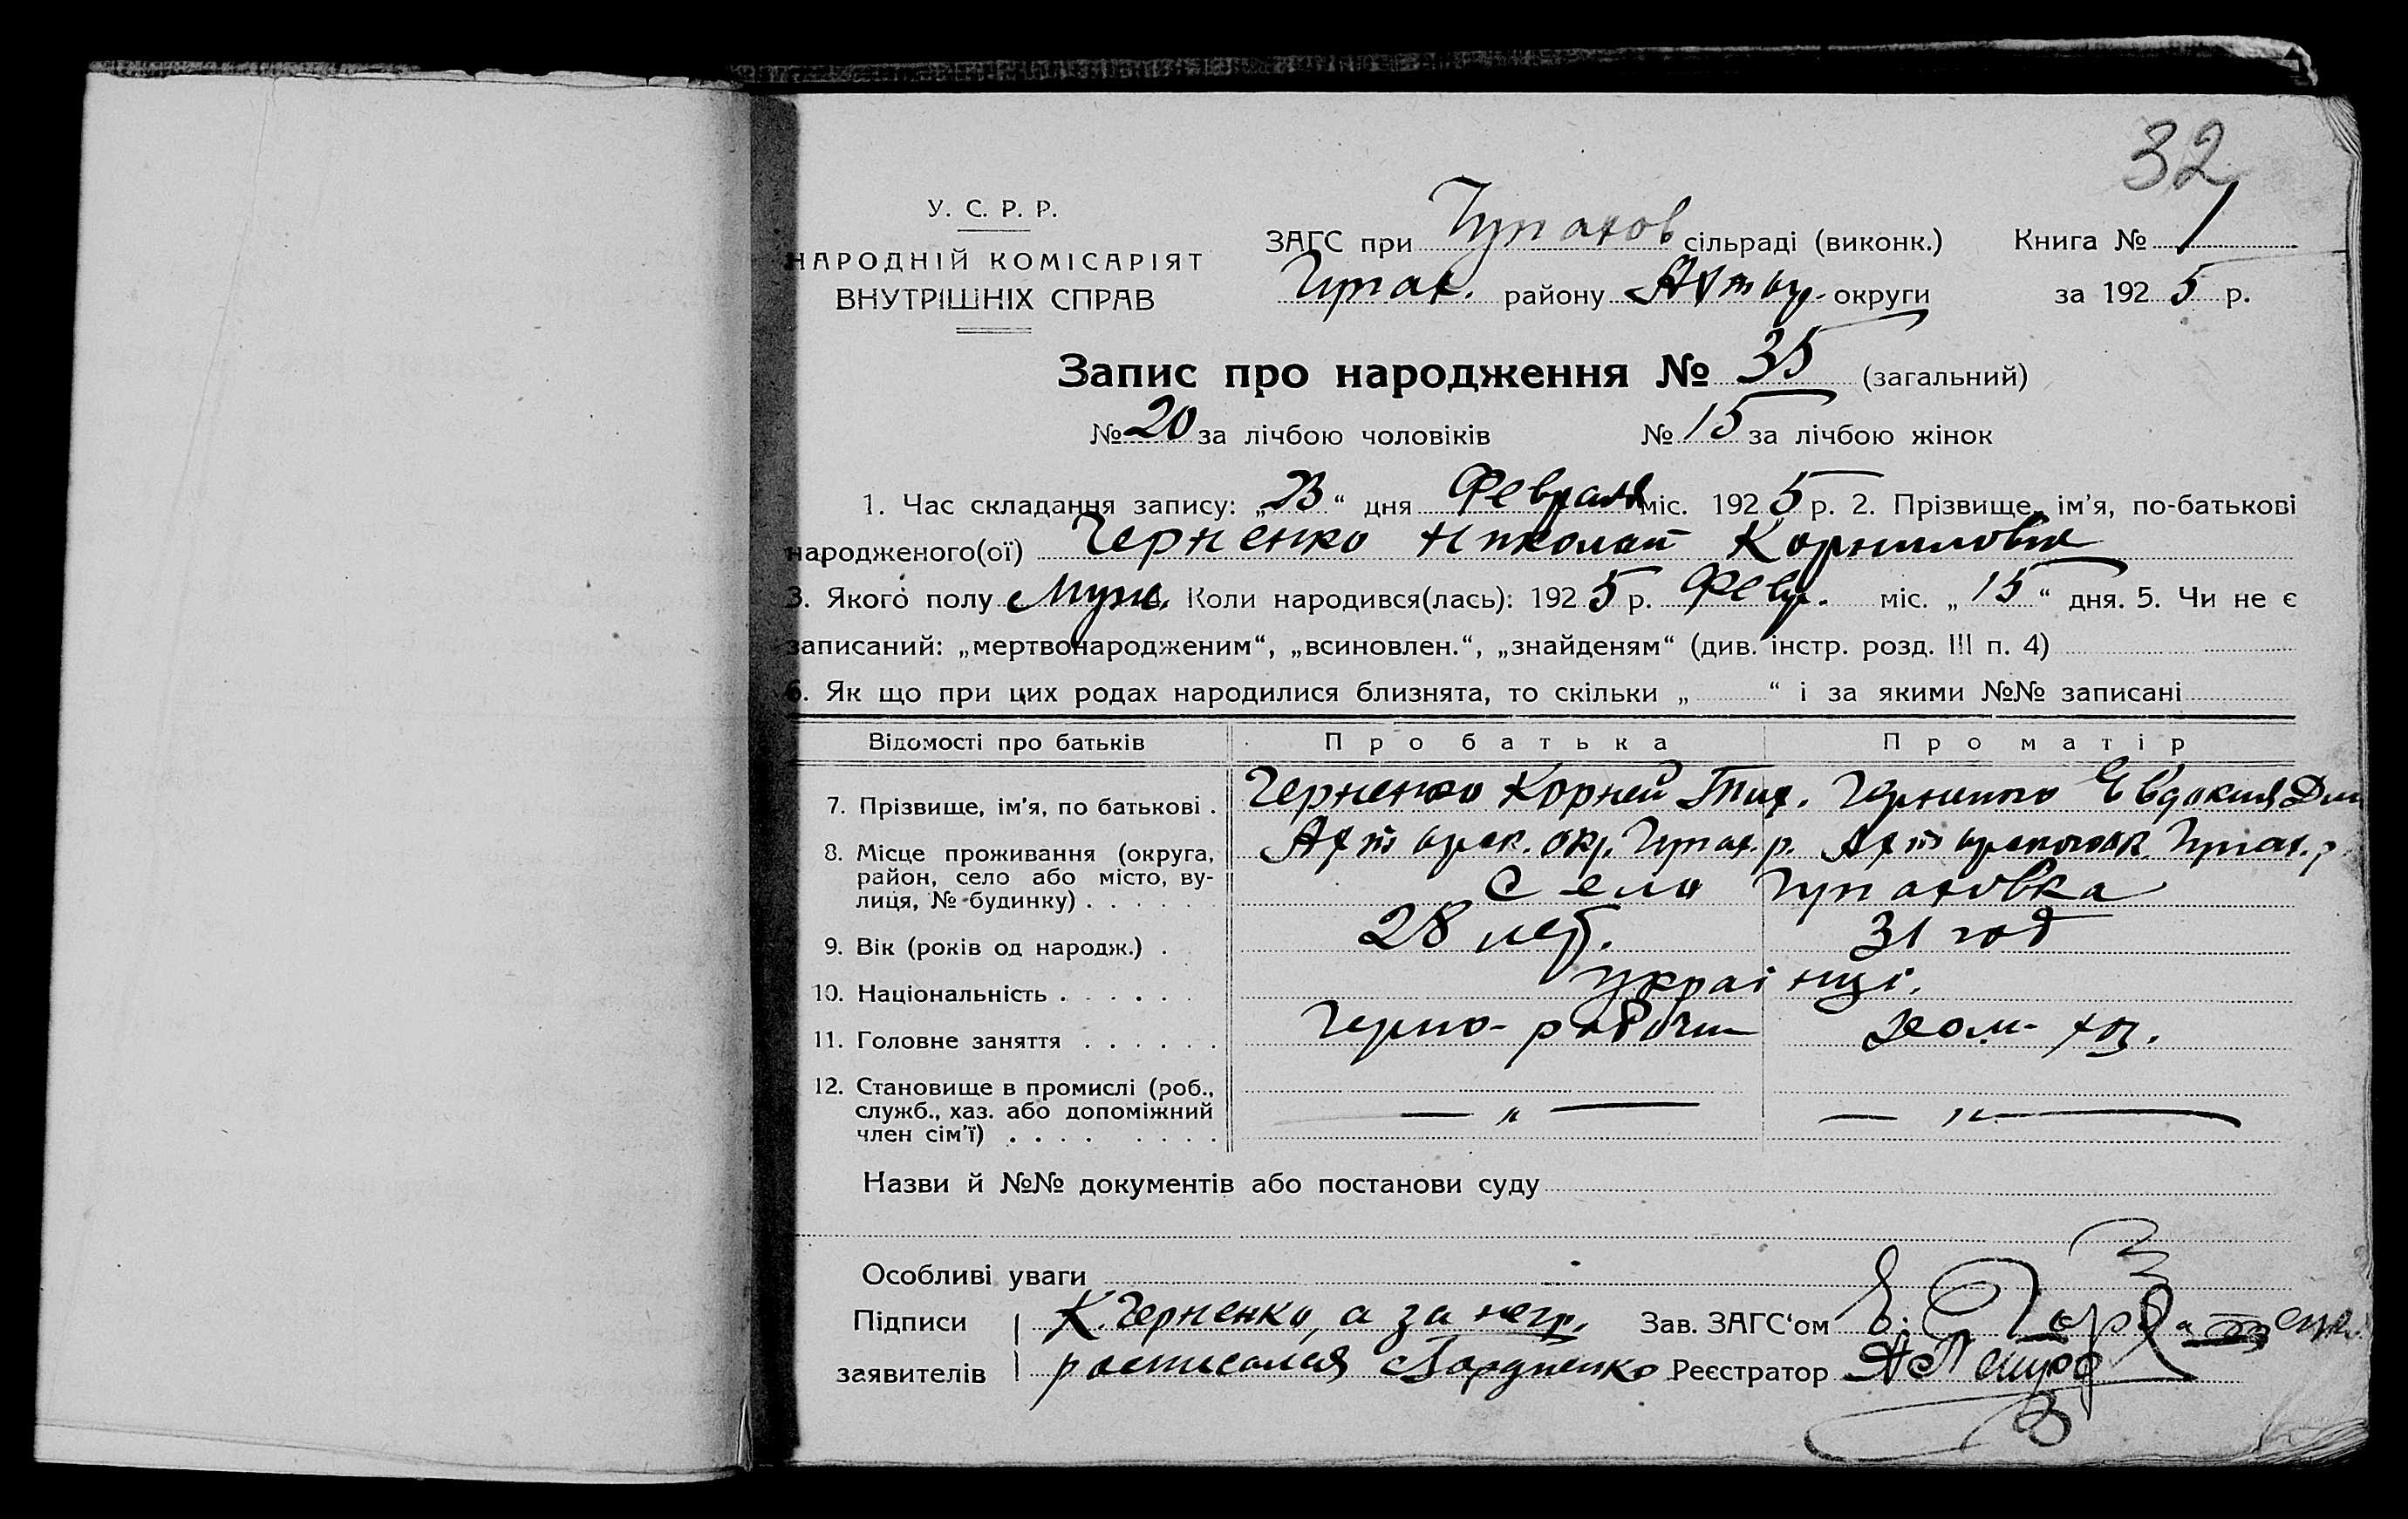 32
У. С. Р. Р.
НАРОДНІЙ КОМІСАРІЯТ
ВНУТРІШНІХ СПРАВ
ЗАГС при Чупахов сільраді (виконк.) Книга № 1
Чупах. району Ахтыр. округи за 1925 р.
Запис про народження № 35 (загальний)
№ 20 за лічбою чоловіків № 15 за лічбою жінок
1. Час складання запису: „23“ дня Февраля міс. 1925 р. 2. Прізвище, ім'я, по-батькові
народженого(ої) Черненко Николай Корнилович
3. Якого полу Муж. Коли народився(лась): 1925 р. Февр. міс. „15“ дня. 5. Чи не є
записаний: „мертвонародженим“, „всиновлен.“, „знайденям“ (див. інстр. розд. III п. 4)
6. Як що при цих родах народилися близнята, то скільки „ “ і за якими №№ записані
Відомості про батьків Про батька Про матір
7. Прізвище, ім'я, по батькові . Черненко Корней Тих. Черненко Евдокия Дм
8. Місце проживання (округа, Ахтырск. окр. Чупах. р. Чупах. р.
район, село або місто, ву-
лиця, № будинку) . . . . . Село Чупаховка
9. Вік (років од народж.) . 28 лет. 31 год
10. Національність . . . . . . українці.
11. Головне заняття . . . . . . Черно-рабочи дом-хоз.
12. Становище в промислі (роб.,
служб., хаз. або допоміжний — „ — — „ —
член сім'ї) . . . . . . . .
Назви й №№ документів або постанови суду
Особливі уваги
Підписи К. Черненко, а за негр. Зав. ЗАГС'ом
заявителів росписался Реєстратор